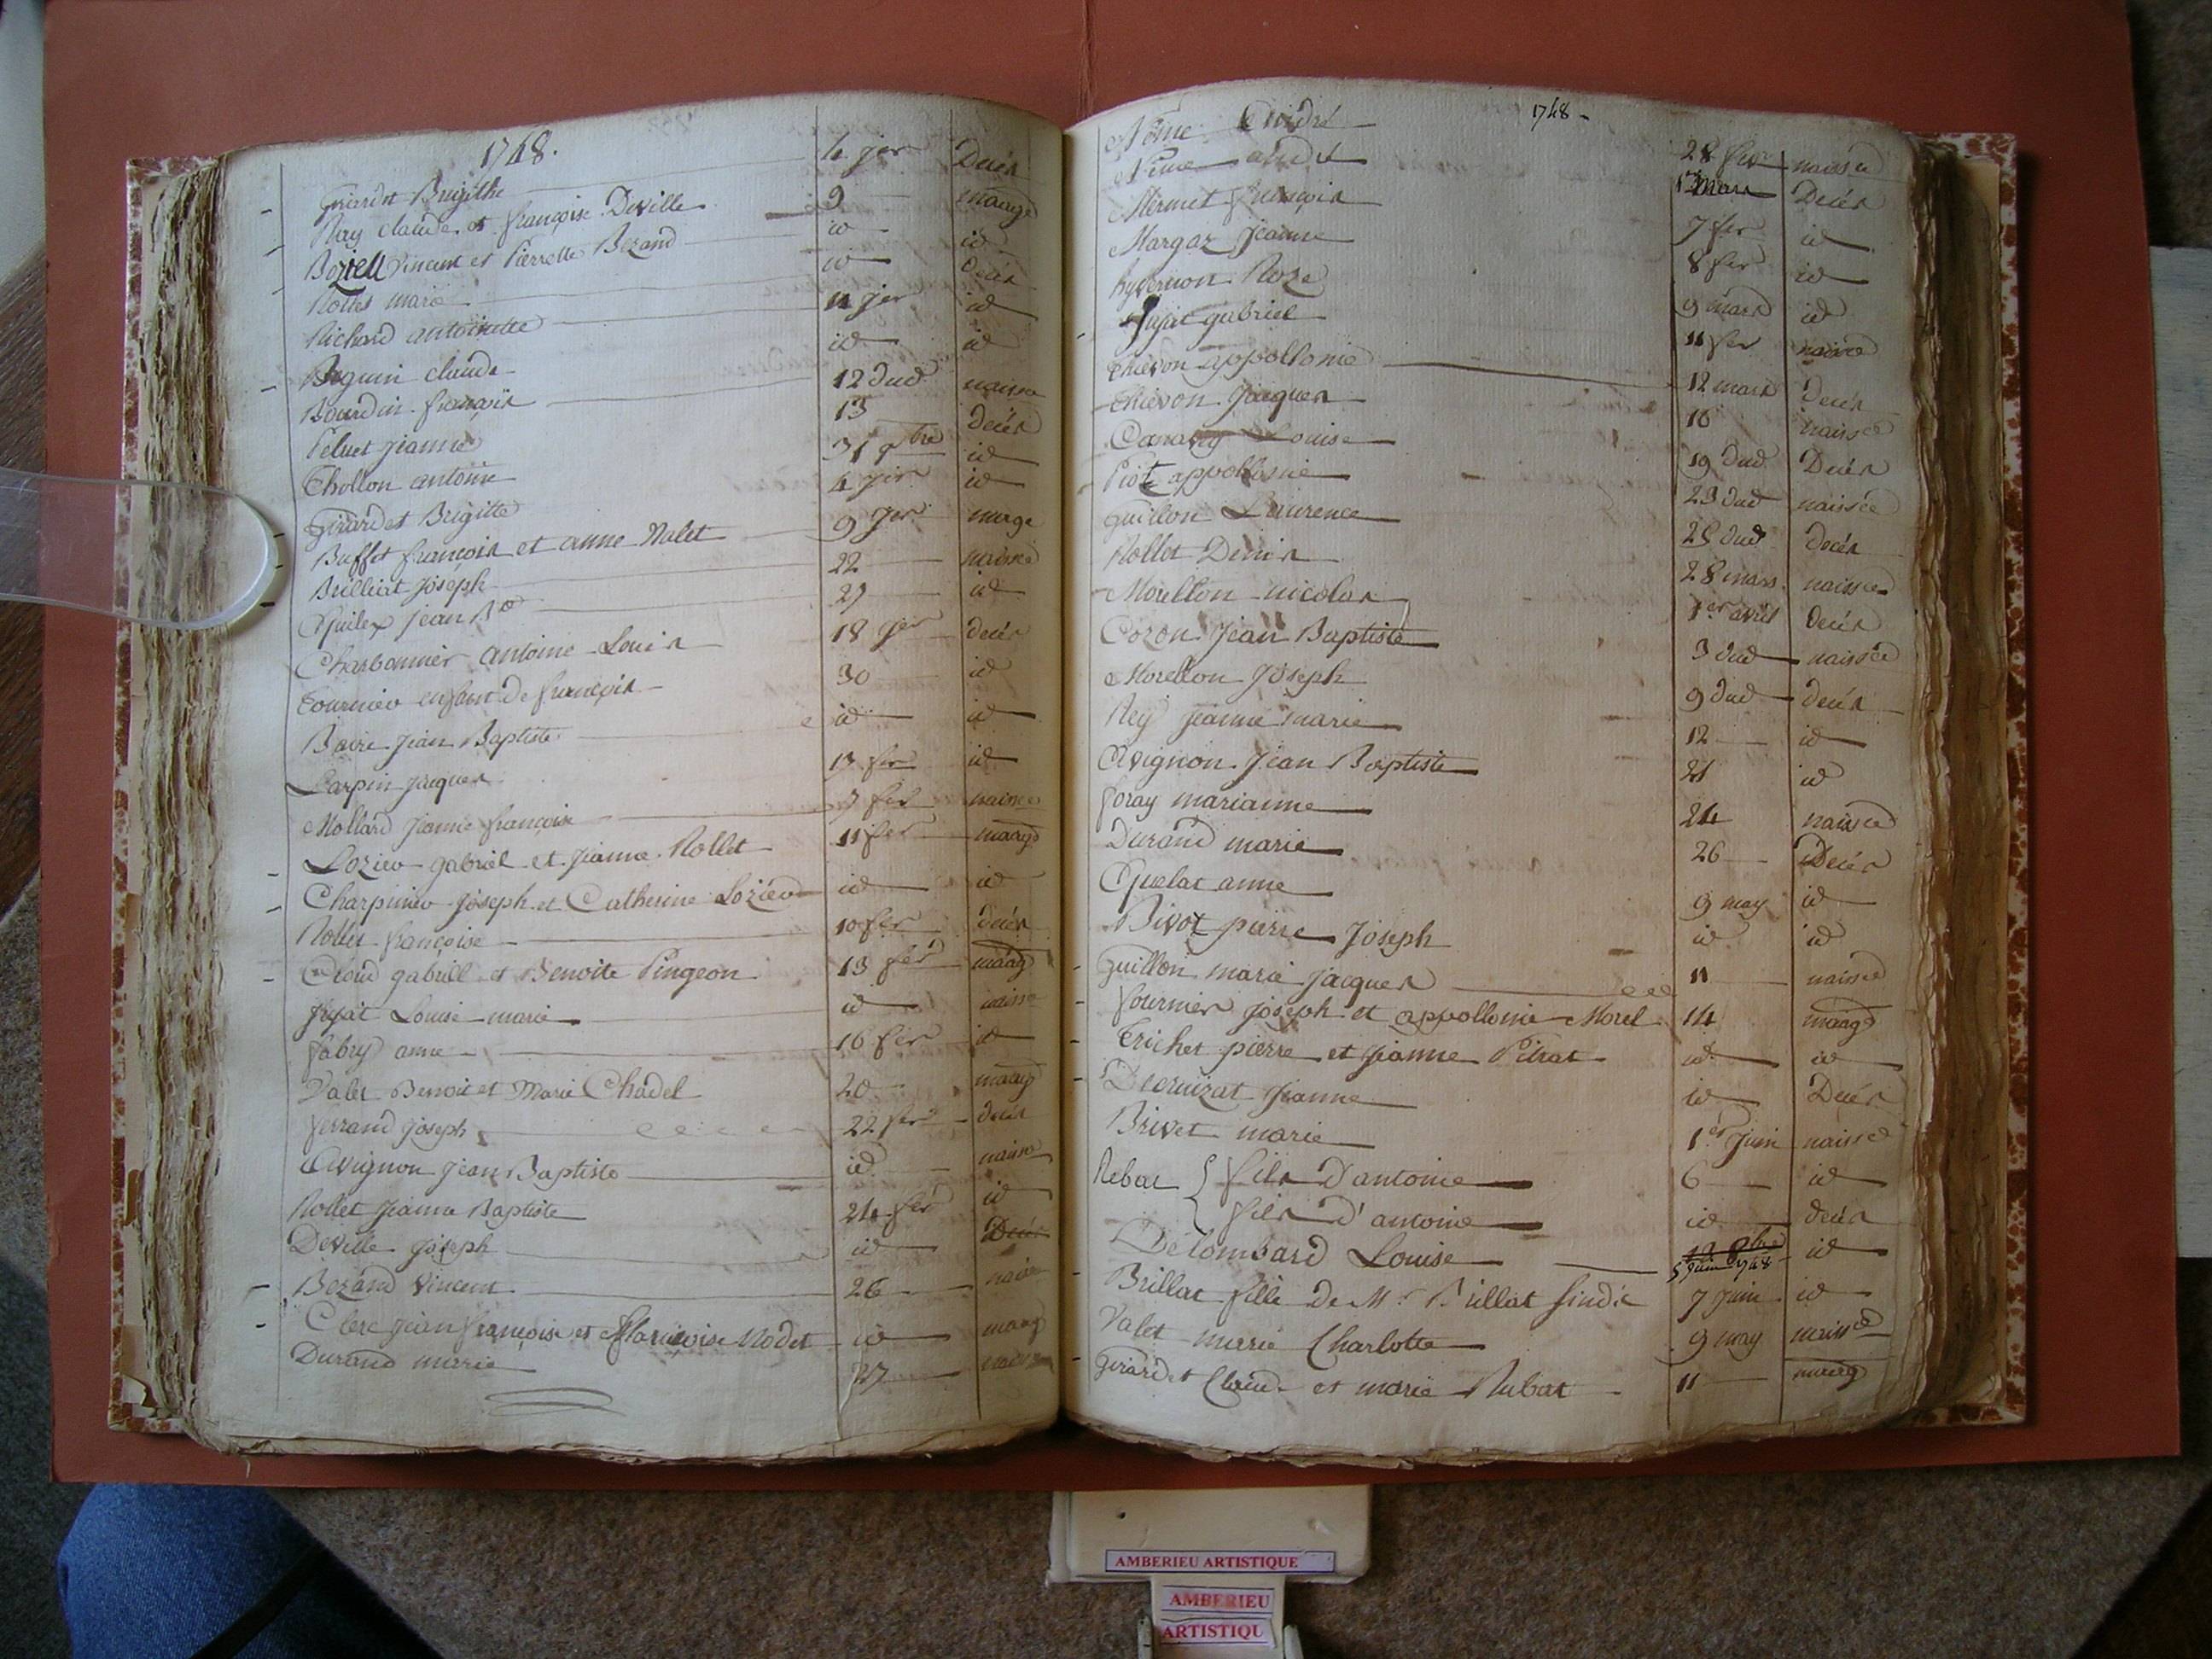 1748.
Girardet Brigithe 4 jer Decés
Ray claude et françoise Deville 9 mariage
Boziell vincent et Pierrette Bezand id id
Rollet marie id decés
Richard antoinette 11 jer id
Beguin claude id id
Bourdin françois 12 dud naissa
Peluet jeanne 13 decés
Chollon antoine 31 id
Girardet Brigitte 4 jer id
Buffet françois et anne Valet 9 jer marge
Brilliat joseph 22 naissce
jean Bte 29 id
Charbonnier antoine Louis 18 jer decés
Tournier enfant de françois 30 id
Baire jean Baptiste id id
Carpin jacques 13 fer id
Mollard jeanne françoise 7 fer naissce
Lozier gabriel et jeanne Rollet 11 fer maage
Charpinier joseph et Catherine Lozier id id
Rollet françoise 10 fer decés
gabriell et Benoite Pingeon 13 fer maag
jujat Louise marie id naissa
fabry anne 16 fer id
Valet Benoit et Marie Chadel 20 maag
ferrand joseph 22 fer decés
Avignon jean Baptiste id naissa
Rollet jeanne Baptiste 24 fer id
Deville joseph id Decés
Bezand vincent 26 naiss
Clerc jean françois et françoise Nodet id maag
Durand marie 27 naiss
1748
Néme André 28 fer naissce
Néme andré 1er Mars Decés
Mermet françois 7 fer id
Margaz jeanne 8 fer id
hyvernon Roze 9 mars id
jujat gabriel 11 fer naissce
Chievon appollonie 12 mars decés
Chievon jacques 16 naissce
Louise 19 dud Decés
Piot appollonie 23 dud naissce
Guillon Laurence 25 dud decés
Rollet Denis 28 mars naissce
Morellon nicolas 1er avril decés
Cozon jean Baptiste 3 dud naissce
Morellon joseph 9 dud decés
Rey jeanne marie 12 id
Avignon jean Baptiste 21 id
foray marianne 24 naissce
Durand marie 26 Decés
anne 9 may id
Bivot pierre joseph id id
Guillon marie jacques 11 naissce
fournier joseph et appollonie Morel 14 maage
Trichet pierre et jeanne Pitrat id id
Decruizat jeanne id Decés
Brivet marie 1er juin naissce
Rebat fils d'antoine 6 id
fils d'antoine id decés
Delombard Louise 5 juin 1748 id
Brillat fille de Mr Brillat sindic 7 juin id
Valet marie Charlotte 9 may naissce
Girardet Claude et marie Rubat 11 maag
AMBERIEU ARTISTIQUE
AMBERIEU
ARTISTIQU